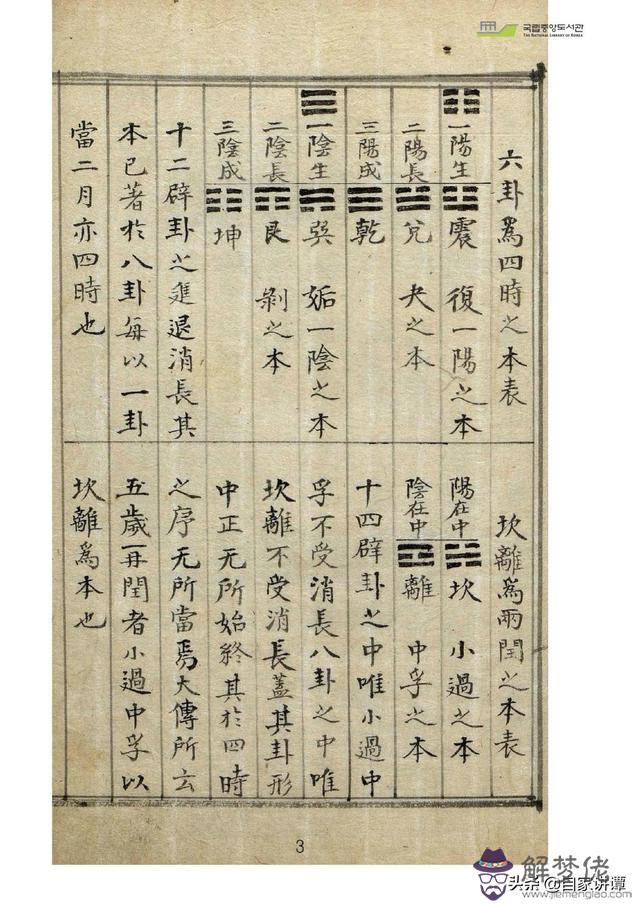 국립중앙도서관
THE NATIONAL LIBRARY OF KOREA
六卦爲四時之本表
一陽生 震 復一陽之本
二陽長 兌 夬之本
三陽成 乾
一陰生 巽 姤一陰之本
二陰長 艮 剝之本
三陰成 坤
十二辟卦之進退消長其
本已著於八卦每以一卦
當二月亦四時也
坎離爲兩閏之本表
陽在中 坎 小過之本
陰在中 離 中孚之本
十四辟卦之中唯小過中
孚不受消長八卦之中唯
坎離不受消長蓋其卦形
中正无所始終其於四時
之序无所當焉大傳所云
五歲再閏者小過中孚以
坎離爲本也
3
解梦佬
头条 @自家讲谭
www.jiemenglao.com